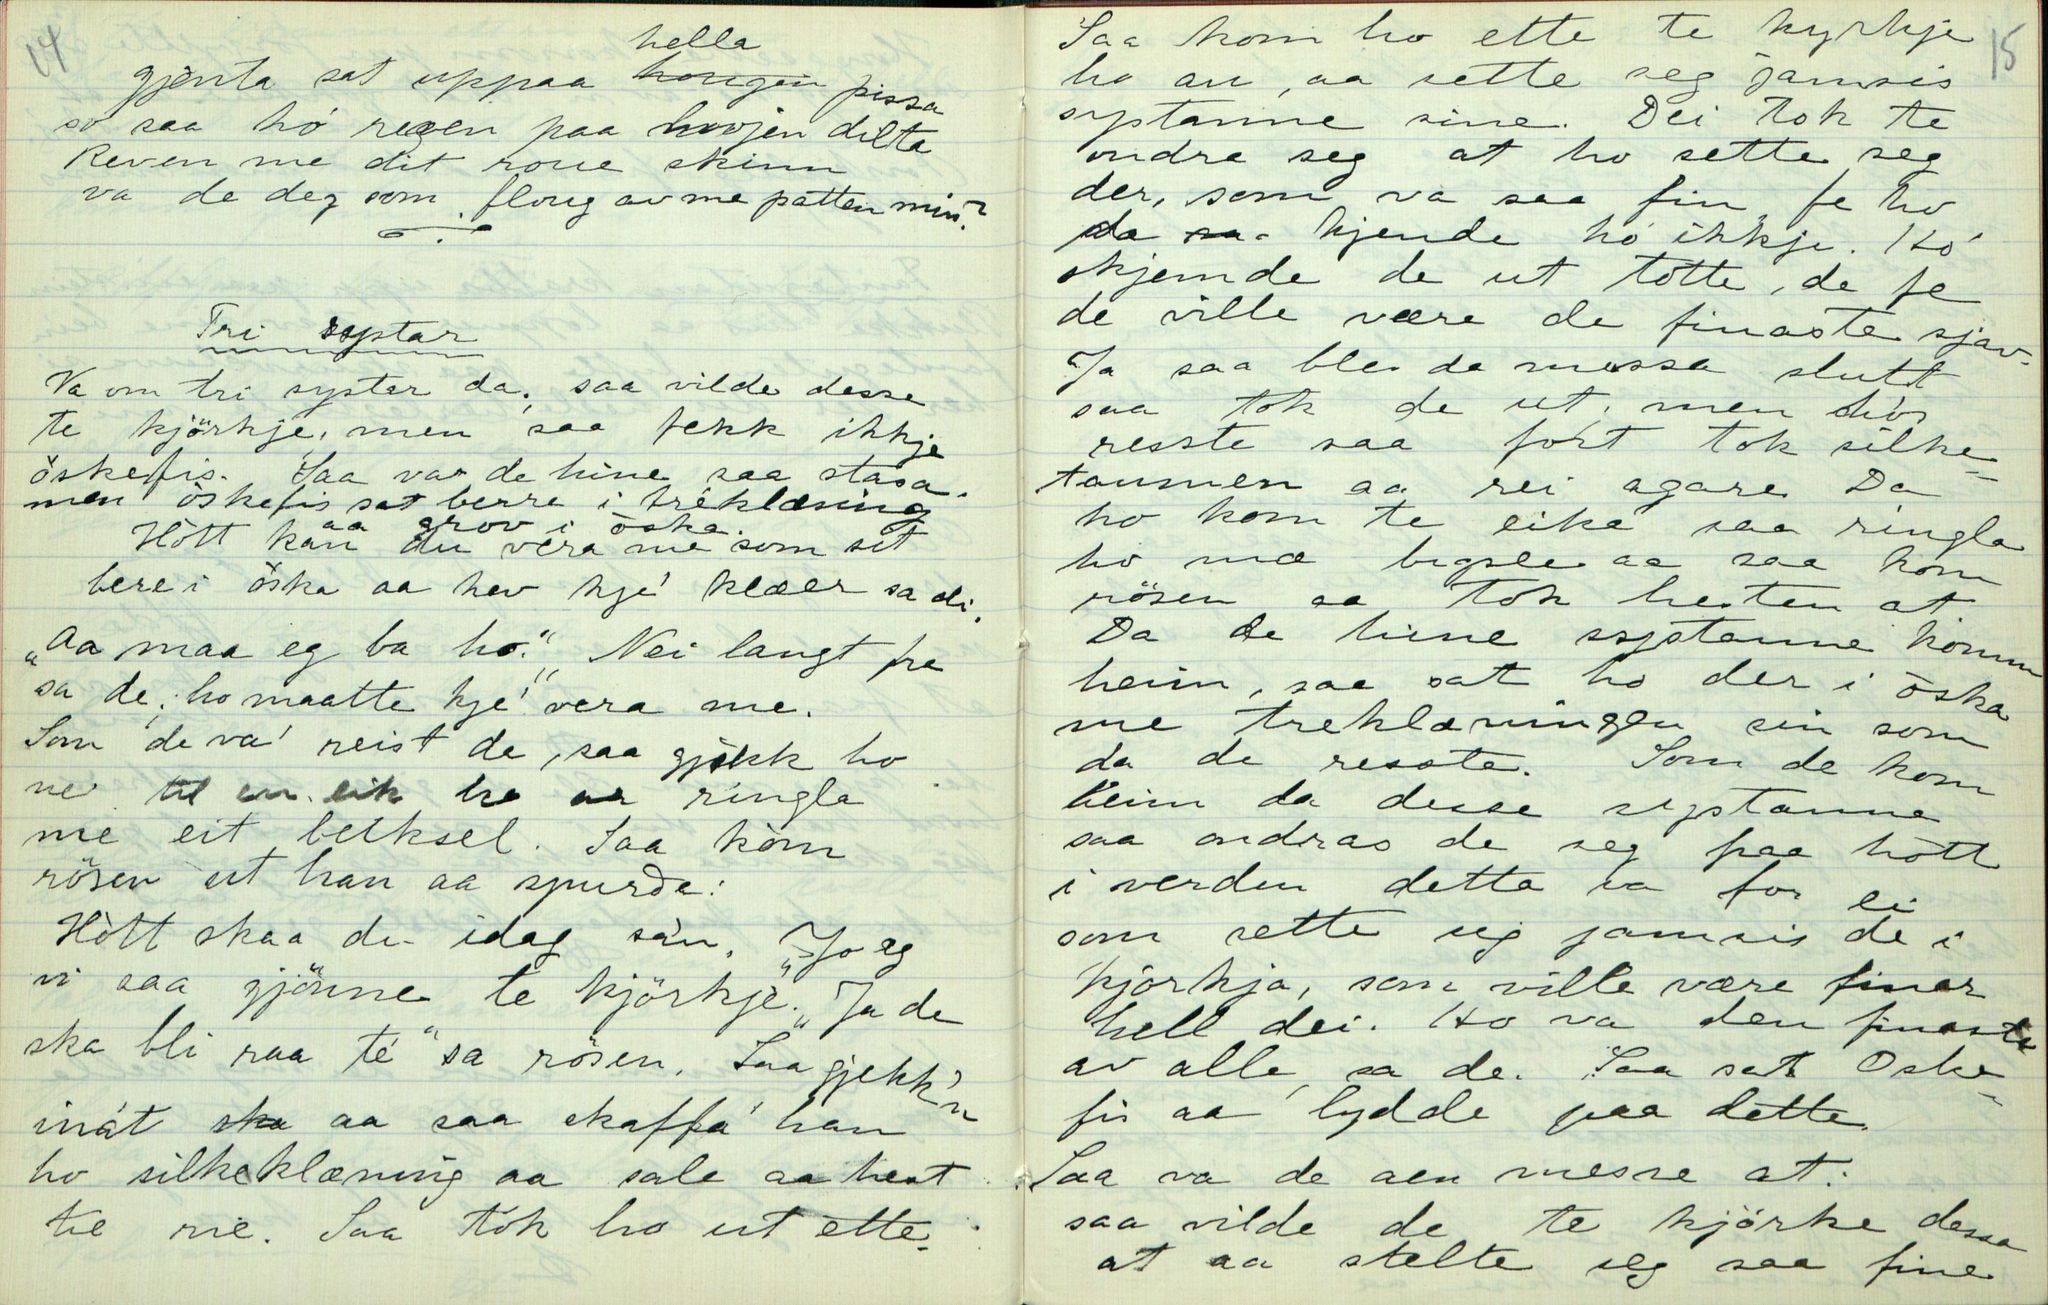 14
hella
gjenta sat uppaa haugin pissa
so saa hó reven paa haojen dilta
Reven me dit roue skinn
va de deg som floug av me patten min?
Tri systar
Va om tri syster da, saa vilde desse
te kjörkje, men saa fekk ikkje
öskefis. Saa var de hine saa stasa.
men öskefis sat berre i treklæning
aa grov i öska.
Hött kan du vera me som sit
bere i öska aa hev kje' klæer sa di.
"Aa maa eg ba ho." "Nei langt fre
sa de, ho maatte kje' vera me.
Som de va' reist de, saa gjekk ho
ne til en eik ho aa ringla
me eit beiksel. Saa kom
rösen ut han aa spurde:
Hött skaa du idag sàn. "Jo eg
vi saa gjönne te kjörkje." "Ja de
ska bli raa té" sa rösen. Saa gjekk'n
inát ska aa saa skaffa' han
ho silkeklæning aa sale aa hest
tie rie. Saa tok ho ut ette.
15
Saa kom ho ette te kyrkje
ho au, aa sette seg jamsis
systanne sine. Dei tok te
ondra seg at ho sette seg
der, som va saa fin fe ho
da kjende hó ikkje. Hó
skjemde de ut totte, de fe
de ville være de finaste sjav.
Ja saa blei da messa slutt
saa tok de ut, men hó
resste saa fort tok silke-
taumen aa rei agare. Da
ho kom te eika saa ringla
ho mæ bigsle aa saa kom
rösen aa tok hesten at
Da de hine systanne komm
heim, saa sat ho der i öska
me treklæninggu sin som
da de resste. Som de kom
heim da desse systanne
saa ondras de seg paa hött
i verden detta va for ei
som sette sig jamsis de i
kjörkja, som ville være finer
hell dei. Ho va den finaste
av alle, sa de. Saa sat Oske-
fis aa lydde paa dette.
Saa va de aen messe at.
saa vilde de te kjörke dessa
at aa stelte seg saa fine